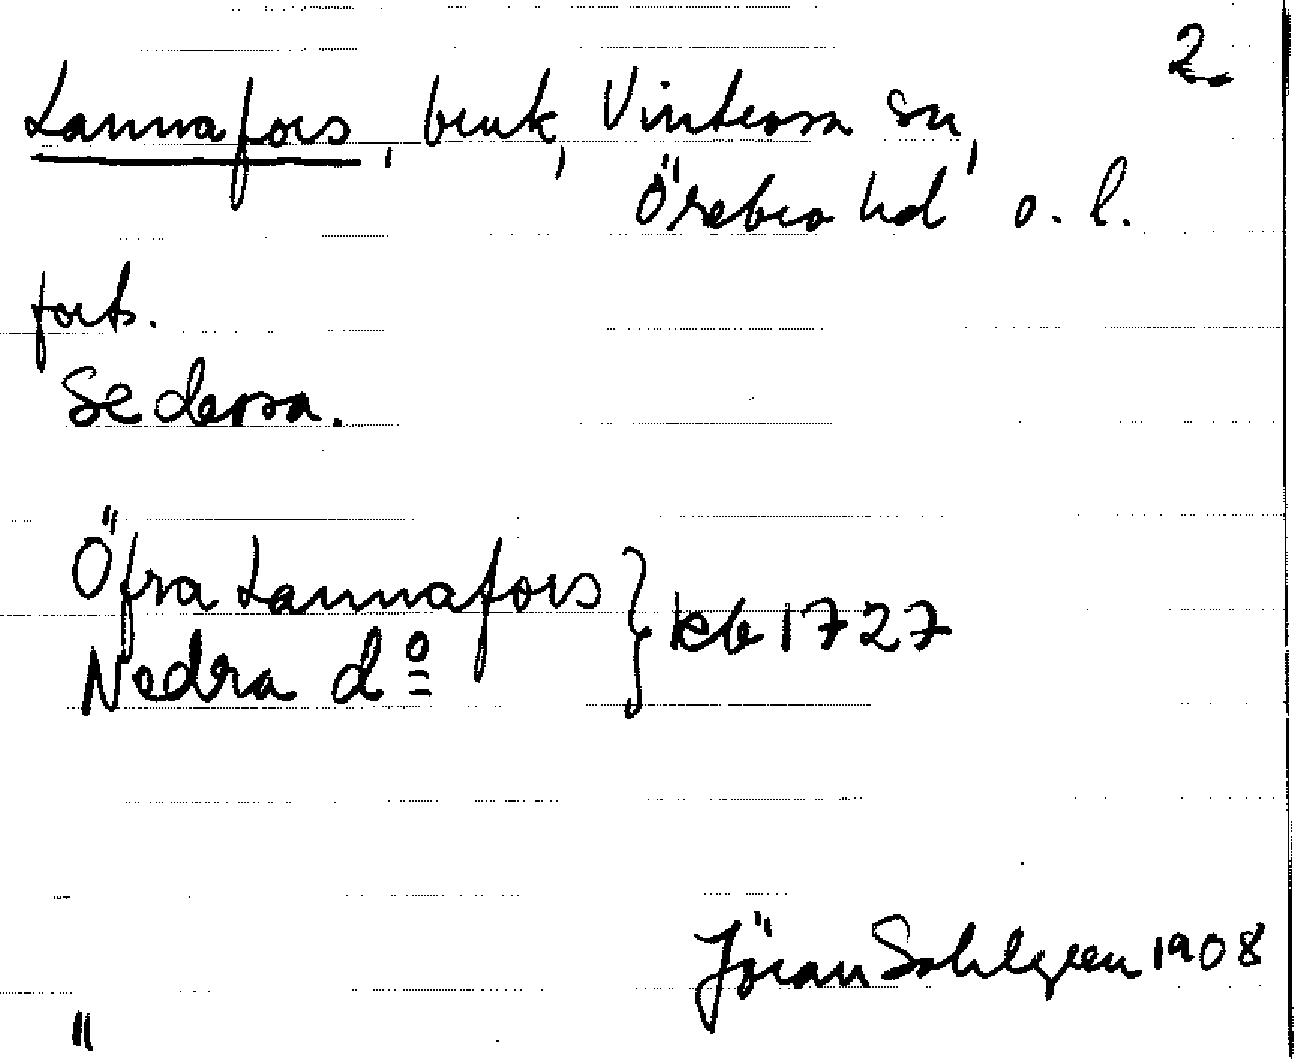 2.
Lannafors, bruk, Vintrosa sn,
Örebro hd o. l.
forts.
Se dessa.
Öfra Lannafors } kb 1727
Nedra do
Jöran Sahlgren 1908
"